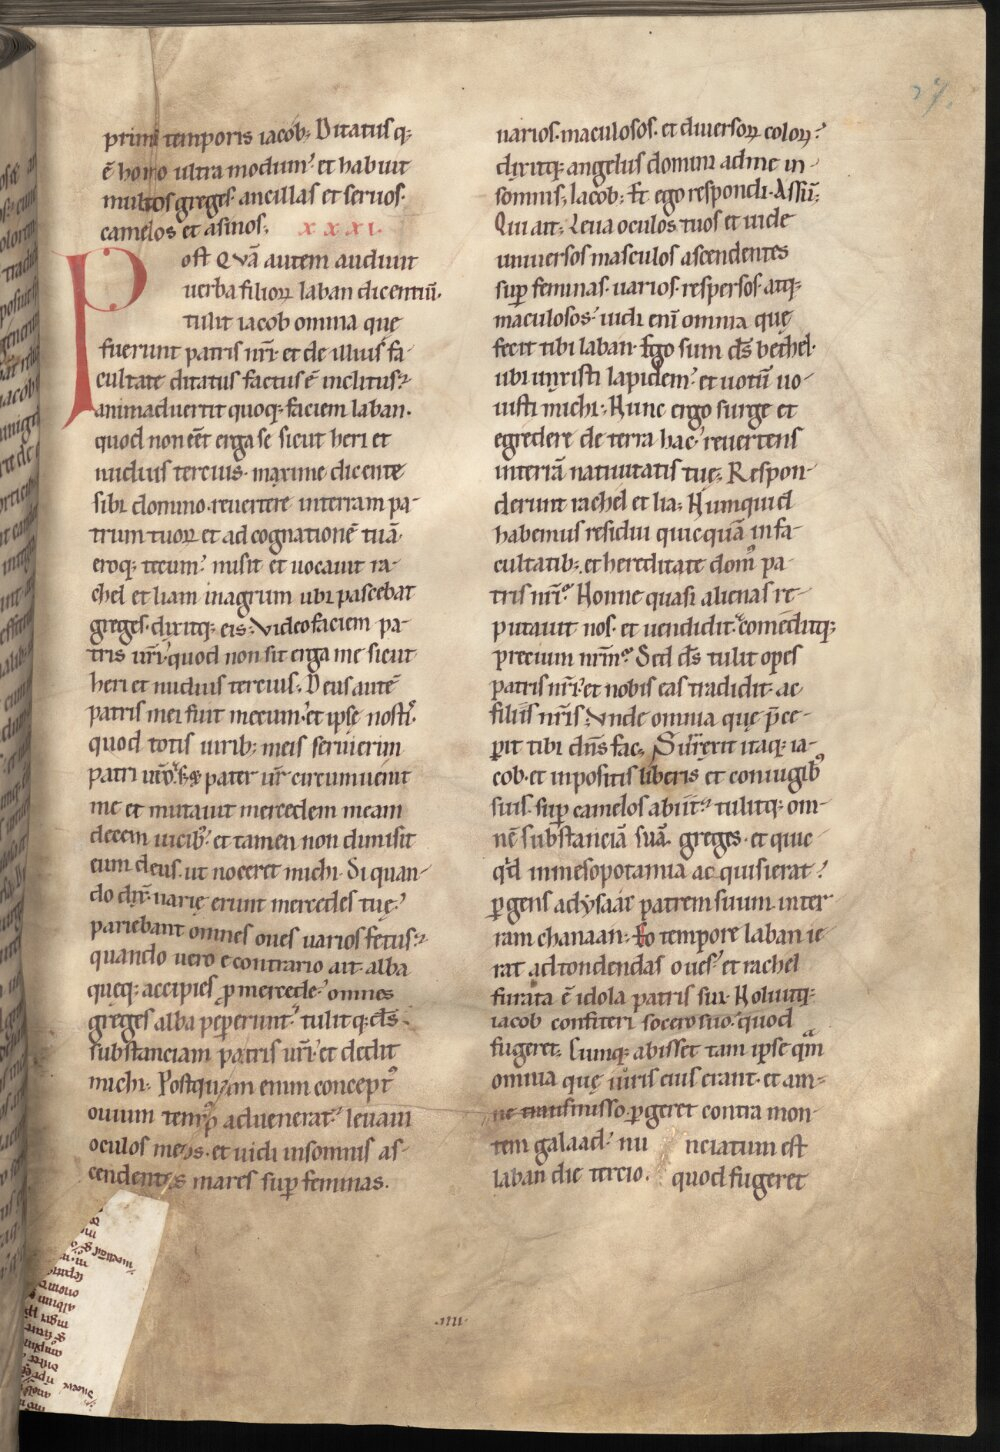 27.
primi temporis iacob; Ditatusq;
ē homo ultra modum. et habuit
multos greges. ancillas et seruos.
camelos et asinos; xxxi.
Post Qvā autem audiuit
uerba filioꝝ laban dicentiū.
tulit iacob omnia que
fuerunt patris nr̄i. et de illius fa-
cultate ditatus factus ē inclitus.
animaduertit quoq; faciem laban.
quod non eēt erga se sicut heri et
nudius tercius. maxime dicente
sibi domino. reuertere interram pa-
trum tuoꝝ et ad cognationē tuā.
eroq; tecum. misit et uocauit ra-
chel et liam inagrum ubi pascebat
greges. dixitq; eis; Video faciem pa-
tris ur̄i. quod non sit erga me sicut
heri et nudius tercius; Deus autē
patris mei fuit mecum. et ipse nosti.
quod totis uirib; meis seruierim
patri uro. pater ur̄ circumuenit
me et mutauit mercedem meam
decem uicib; et tamen non dimisit
eum deus. ut noceret michi. Si quan-
do dix̄. uarię erunt mercedes tuę.
pariebant omnes oues uarios fetus.
quando uero econtrario ait. alba
queq; accipies ꝓ mercede. omnes
greges alba pepererunt. tulitq; ds̄
substanciam patris ur̄i. et dedit
michi; Postquam enim concept9
ouium temp9 aduenerat. leuaui
oculos meos. et uidi insomnis as-
cendentes mares suꝑ feminas.
uarios. maculosos. et diuersoꝝ coloꝝ.
dixitq; angelus domini adme in-
somnis; Iacob; Et ego respondi. Assū;
Qui ait; Leua oculos tuos et uide
uniuersos masculos ascendentes
suꝑ feminas. uarios. respersos. atq;
maculosos. uidi eni omnia quę
fecit tibi laban. Ego sum ds̄ bethel.
ubi unxisti lapidem. et uotū uo-
uisti michi; Nunc ergo surge et
egredere de terra hac. reuertens
interiā natiuitatis tuę; Respon-
derunt rachel et lia; Numquid
habemus residui quicquā infa-
cultatib; et hereditate dom9 pa-
tris nr̄i. Nonne quasi alienas re-
putauit nos. et uendidit. comeditq;
precium nr̄m. Sed ds̄ tulit opes
patris nr̄i. et nobis eas tradidit. ac
filiis nr̄is; Vnde omnia quę p̄ce-
pit tibi dn̄s fac; Surrexit itaq; ia-
cob. et inpositis liberis et coniugib9
suis. suꝑ camelos abiit. tulitq; om-
nē substanciā suā. greges. et quic
qd inmesopotamia acquisierat.
ꝑgens adysaac patrem suum inter
ram chanaan; Eo tempore laban ie-
rat ad tondendas oues. et rachel
furata ē idola patris sui. Noluitq;
iacob confiteri socero suo. quod
fugeret; Cumq; abisset tam ipse qm̄
omnia quę iuris eius erant. et am-
ne transmisso. ꝑgeret contra mon-
tem galaad. nunciatum est
laban die tercio. quod fugeret
.IIII.